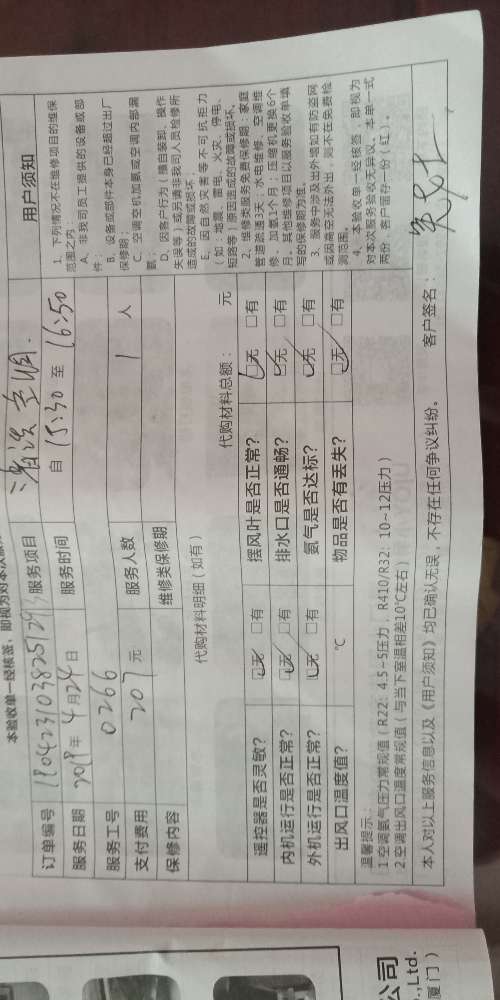 本验收单一经核签，即视为对本次服
订单编号
服务项目 清洗空调.
用户须知
服务日期 2018年4月24日
服务时间 自 15:30 至 16:50
服务工号 0266
支付费用 207 元
服务人数 1 人
保修内容
维修类保修期
代购材料明细（如有）
代购材料总额： 元
遥控器是否灵敏？ □无 □有
摆风叶是否正常？ □无 □有
内机运行是否正常？ □无 □有
排水口是否通畅？ □无 □有
外机运行是否正常？ □无 □有
氨气是否达标？ □无 □有
出风口温度值？ ℃
物品是否有丢失？ □无 □有
1、下列情况不在维修项目的维保
范围之内
A、非我司员工提供的设备或部
件；
B、设备或部件本身已经超过出厂
保修期；
C、空调空机加氨或空调内部漏
氨；
D、因客户行为（擅自装卸、操作
失误等）或另请非我司人员检修所
造成的故障或损坏；
E、因自然灾害等不可抗拒力
（如：地震、雷电、火灾、停电、
短路等）原因造成的故障或损坏。
2、维修类服务免费保修期：家庭
管道疏通3天；水电维修、空调维
修、加氨1个月；压缩机更换6个
月。其他维修项目以服务验收单填
写的保修期为准。
3、服务中涉及出外墙如有防盗网
或因高空无法外出，则不在免费检
测范围。
4、本验收单一经核签，即视为
对本次服务验收无异议，本单一式
两份，客户留存一份（红）。
温馨提示：
1空调氨气压力常规值（R22：4.5~5压力，R410/R32：10~12压力）
2空调出风口温度常规值（与当下室温相差10℃左右）
本人对以上服务信息以及《用户须知》均已确认无误，不存在任何争议纠纷。 客户签名：
公司
.,Ltd.
厦门）